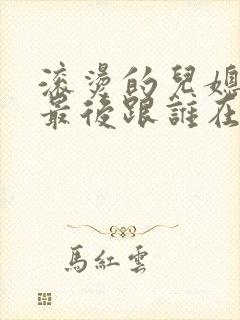 滾燙的兒媳
最後跟誰在
馬紅雲